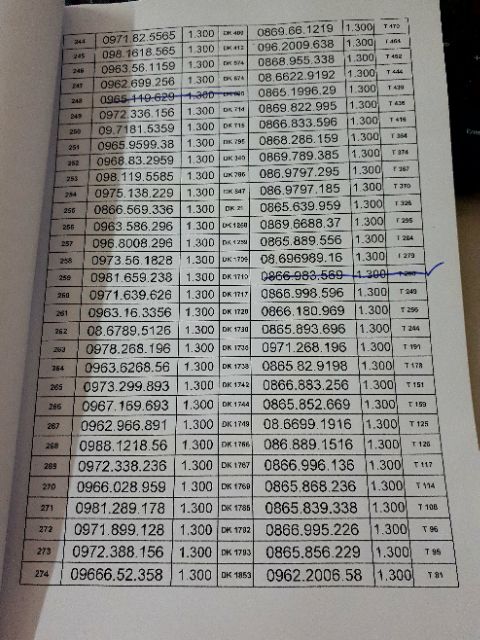 244 0971.82.5565 1.300 DK 400 0869.66.1219 1.300 T 470
245 098.1618.565 1.300 DK 412 096.2009.638 1.300 T 464
246 0963.56.1159 1.300 DK 574 0868.955.338 1.300 T 452
247 0962.699.256 1.300 DK 674 08.6622.9192 1.300 T 444
248 0965.119.629 1.300 0865.1996.29 1.300 T 439
249 0972.336.156 1.300 DK 714 0869.822.995 1.300 T 436
250 09.7181.5359 1.300 DK 715 0866.833.596 1.300 T 416
251 0965.9599.38 1.300 DK 795 0868.286.159 1.300 T 384
252 0968.83.2959 1.300 DK 340 0869.789.385 1.300 T 374
253 098.119.5585 1.300 DK 796 086.9797.295 1.300 T 367
254 0975.138.229 1.300 DK 847 086.9797.185 1.300 T 370
255 0866.569.336 1.300 DK 21 0865.639.959 1.300 T 325
256 0963.586.296 1.300 DK 1268 0869.6688.37 1.300 T 295
257 096.8008.296 1.300 DK 1259 0865.889.556 1.300 T 284
258 0973.56.1828 1.300 DK 1709 08.696989.16 1.300 T 273
259 0981.659.238 1.300 DK 1710 0866.983.569 1.300
260 0971.639.626 1.300 DK 1717 0866.998.596 1.300 T 249
261 0963.16.3356 1.300 DK 1720 0866.180.969 1.300 T 256
262 08.6789.5126 1.300 DK 1730 0865.893.696 1.300 T 244
263 0978.268.196 1.300 DK 1735 0971.268.196 1.300 T 191
264 0963.6268.56 1.300 DK 1738 0865.82.9198 1.300 T 178
265 0973.299.893 1.300 DK 1742 0866.883.256 1.300 T 151
266 0967.169.693 1.300 DK 1744 0865.852.669 1.300 T 159
267 0962.966.891 1.300 DK 1749 08.6699.1916 1.300 T 125
268 0988.1218.56 1.300 DK 1766 086.889.1516 1.300 T 126
269 0972.338.236 1.300 DK 1767 0866.996.136 1.300 T 117
270 0966.028.959 1.300 DK 1769 0865.868.236 1.300 T 114
271 0981.289.178 1.300 DK 1785 0865.839.338 1.300 T 108
272 0971.899.128 1.300 DK 1792 0866.995.226 1.300 T 96
273 0972.388.156 1.300 DK 1793 0865.856.229 1.300 T 95
274 09666.52.358 1.300 DK 1853 0962.2006.58 1.300 T 81